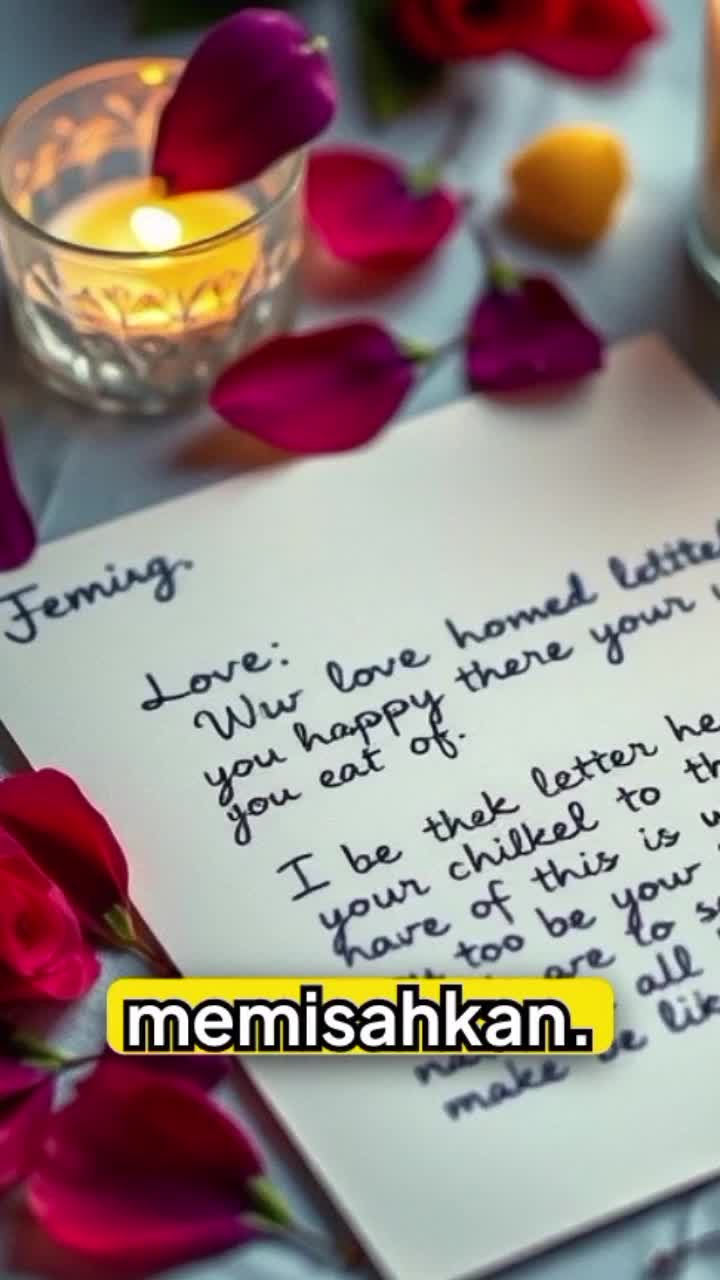 Feming.
Love:
Ww love homed
you happy there your
you eat of.
I be thek letter he
your chilkel to th
have of this is
too be your
are to
all
make be lik
memisahkan.